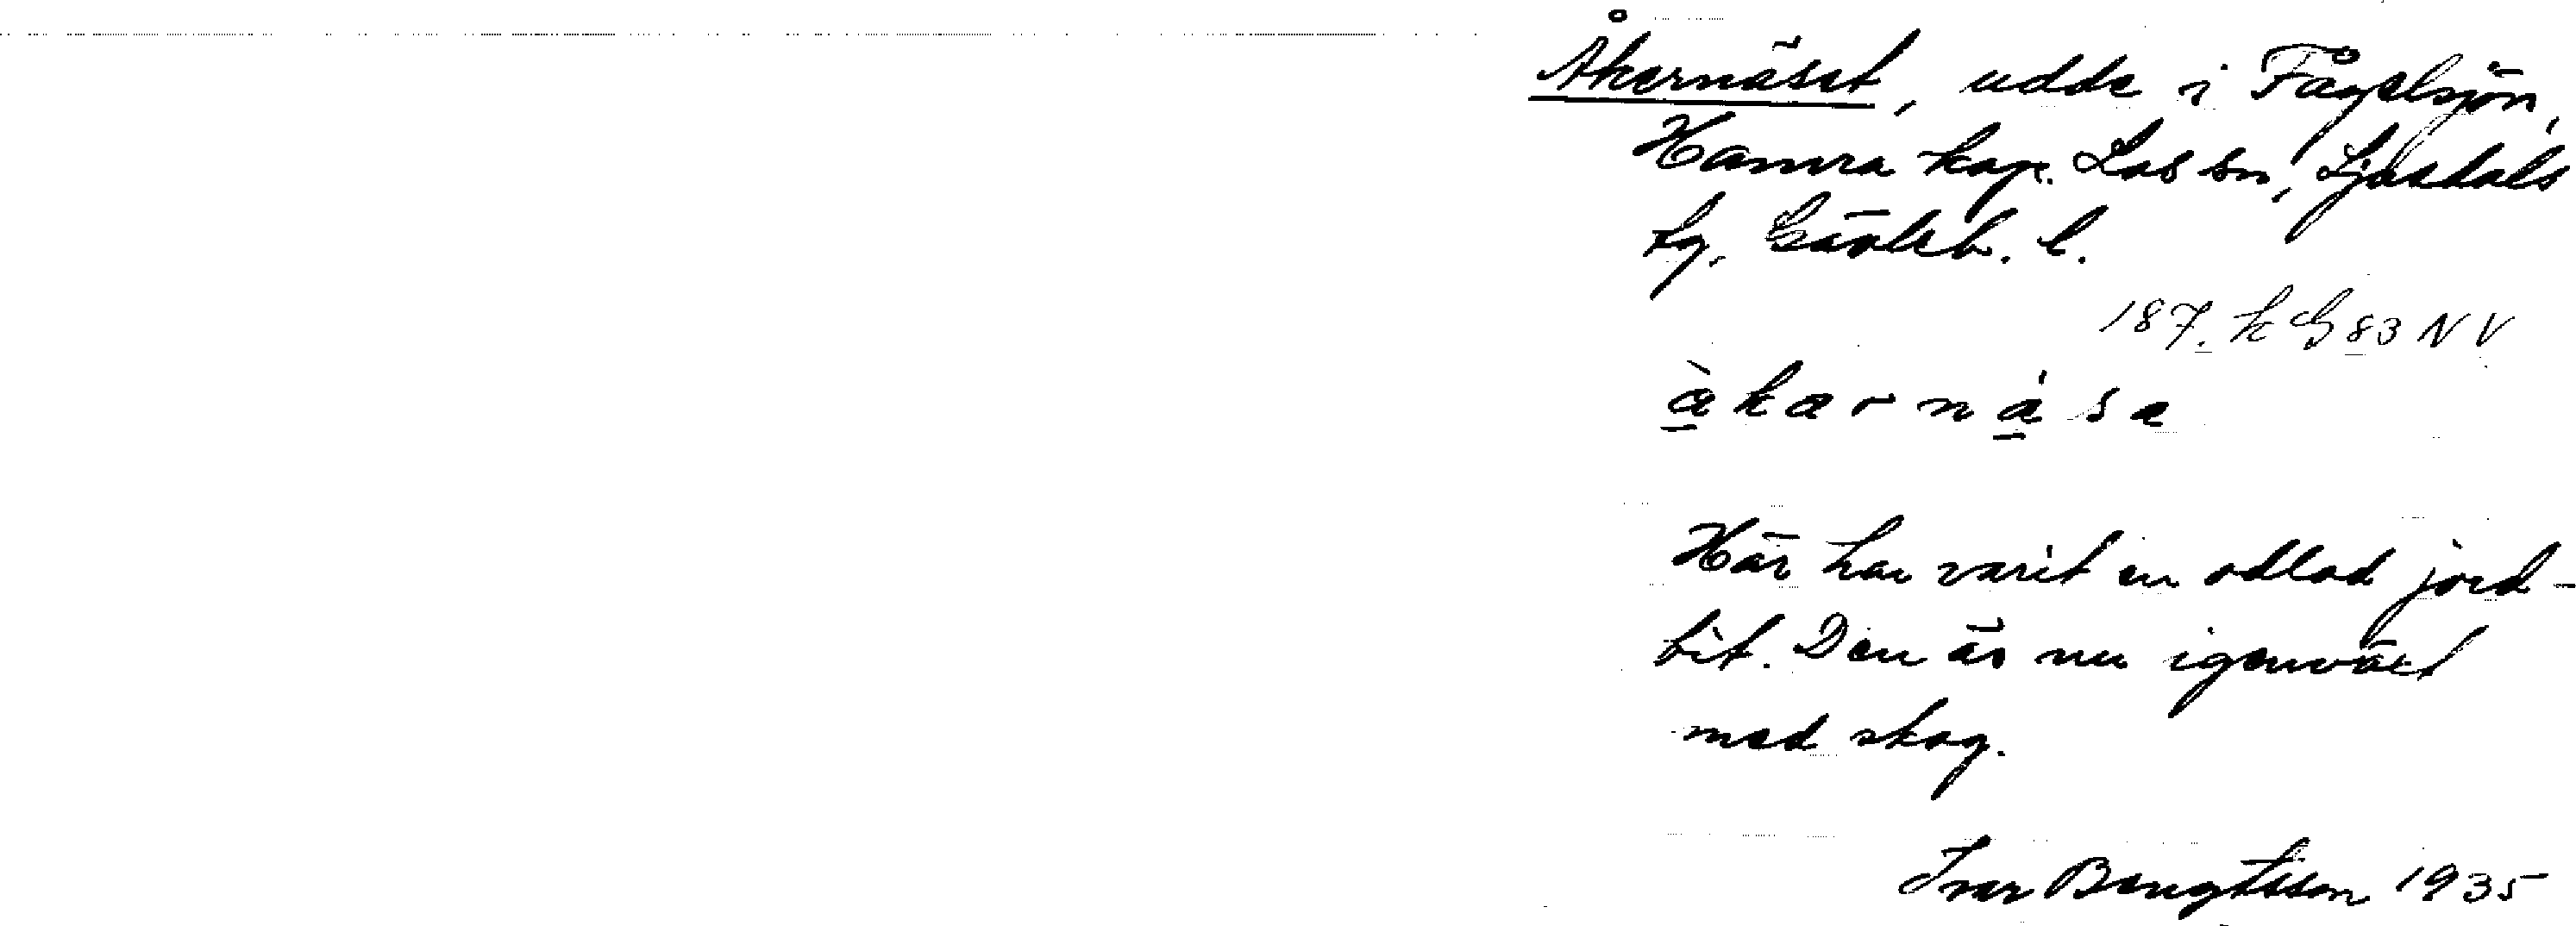 Åkernäset, udde i Fågelsjön,
Hamra kap. Los sn, Ljusdals
tg, Gävleb. l.
187. k G 83 NV
àkarnása
Här har varit en odlad jord-
bit. Den är nu igenväxt
med skog.
Ivar Bengtsson 1935